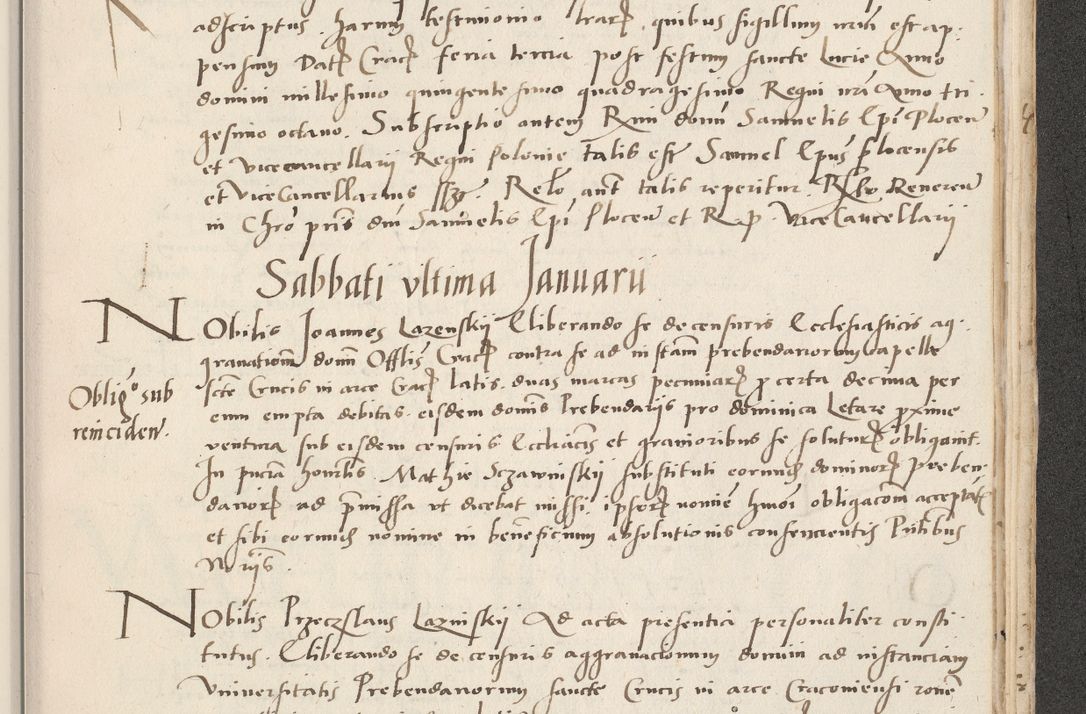 adscriptus. harum testimonio lrarꝝ quibus sigillum nrm̄ est ap:
pensum Datꝝ Cracꝝ feria tercia post festum sancte Lucie Anno
domini millesimo quingentesimo quadragesimo Regni nri Anno tri:
gesimo octavo. Subscriptio autem Rmi domi Samuelis Epi Plocen
et vicecancellarii Regni Polonie talis est Samuel Epus plocensis
et ViceCancellarius sszt. Relo aut talis reperitur. Relo Reveren
in Chro pris dni Samuelis Epi Plocen et R. p. ViceCancellarij
Sabbati vltima Januarii
NObilis Joannes Lazenskij Eliberando se de censuris Ecclesiasticis ag:
gravationū domi Offlis Cracꝝ contra se ad instam prebendariorum capelle
Oblig° sub
reinciden.
scte Crucis in arce Cracꝝ latis. duas marcas pecuniarꝝ p certa decima per
eum empta debitas. eisdem domis Prebendarijs pro dominica Letare pxime
ventura sub eisdem censuris Eccliacis et gravioribus se soluturꝝ obligavit.
In pntia honrlis Mathie Sczawinskij substituti eorundꝫ dominorꝝ Preben:
dariorꝝ ad pmissa vt dicebat missi. ipsorꝝ nomie hmoi obligacom acceptan
et sibi eorundꝫ nomine in beneficium absolutionis consencientis Pntibus
Norijs.
NObilis Przeczslaus Lazinskij Ad acta presentia personaliter consti:
tutus. Eliberando se de censuris aggravacionum domini ad instanciam
Vniversitatis Prebendariorum sancte Crucis in arce Cracoviensi rone